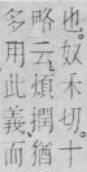 也。奴禾切。十
略云。煩撋猶
多用此義而